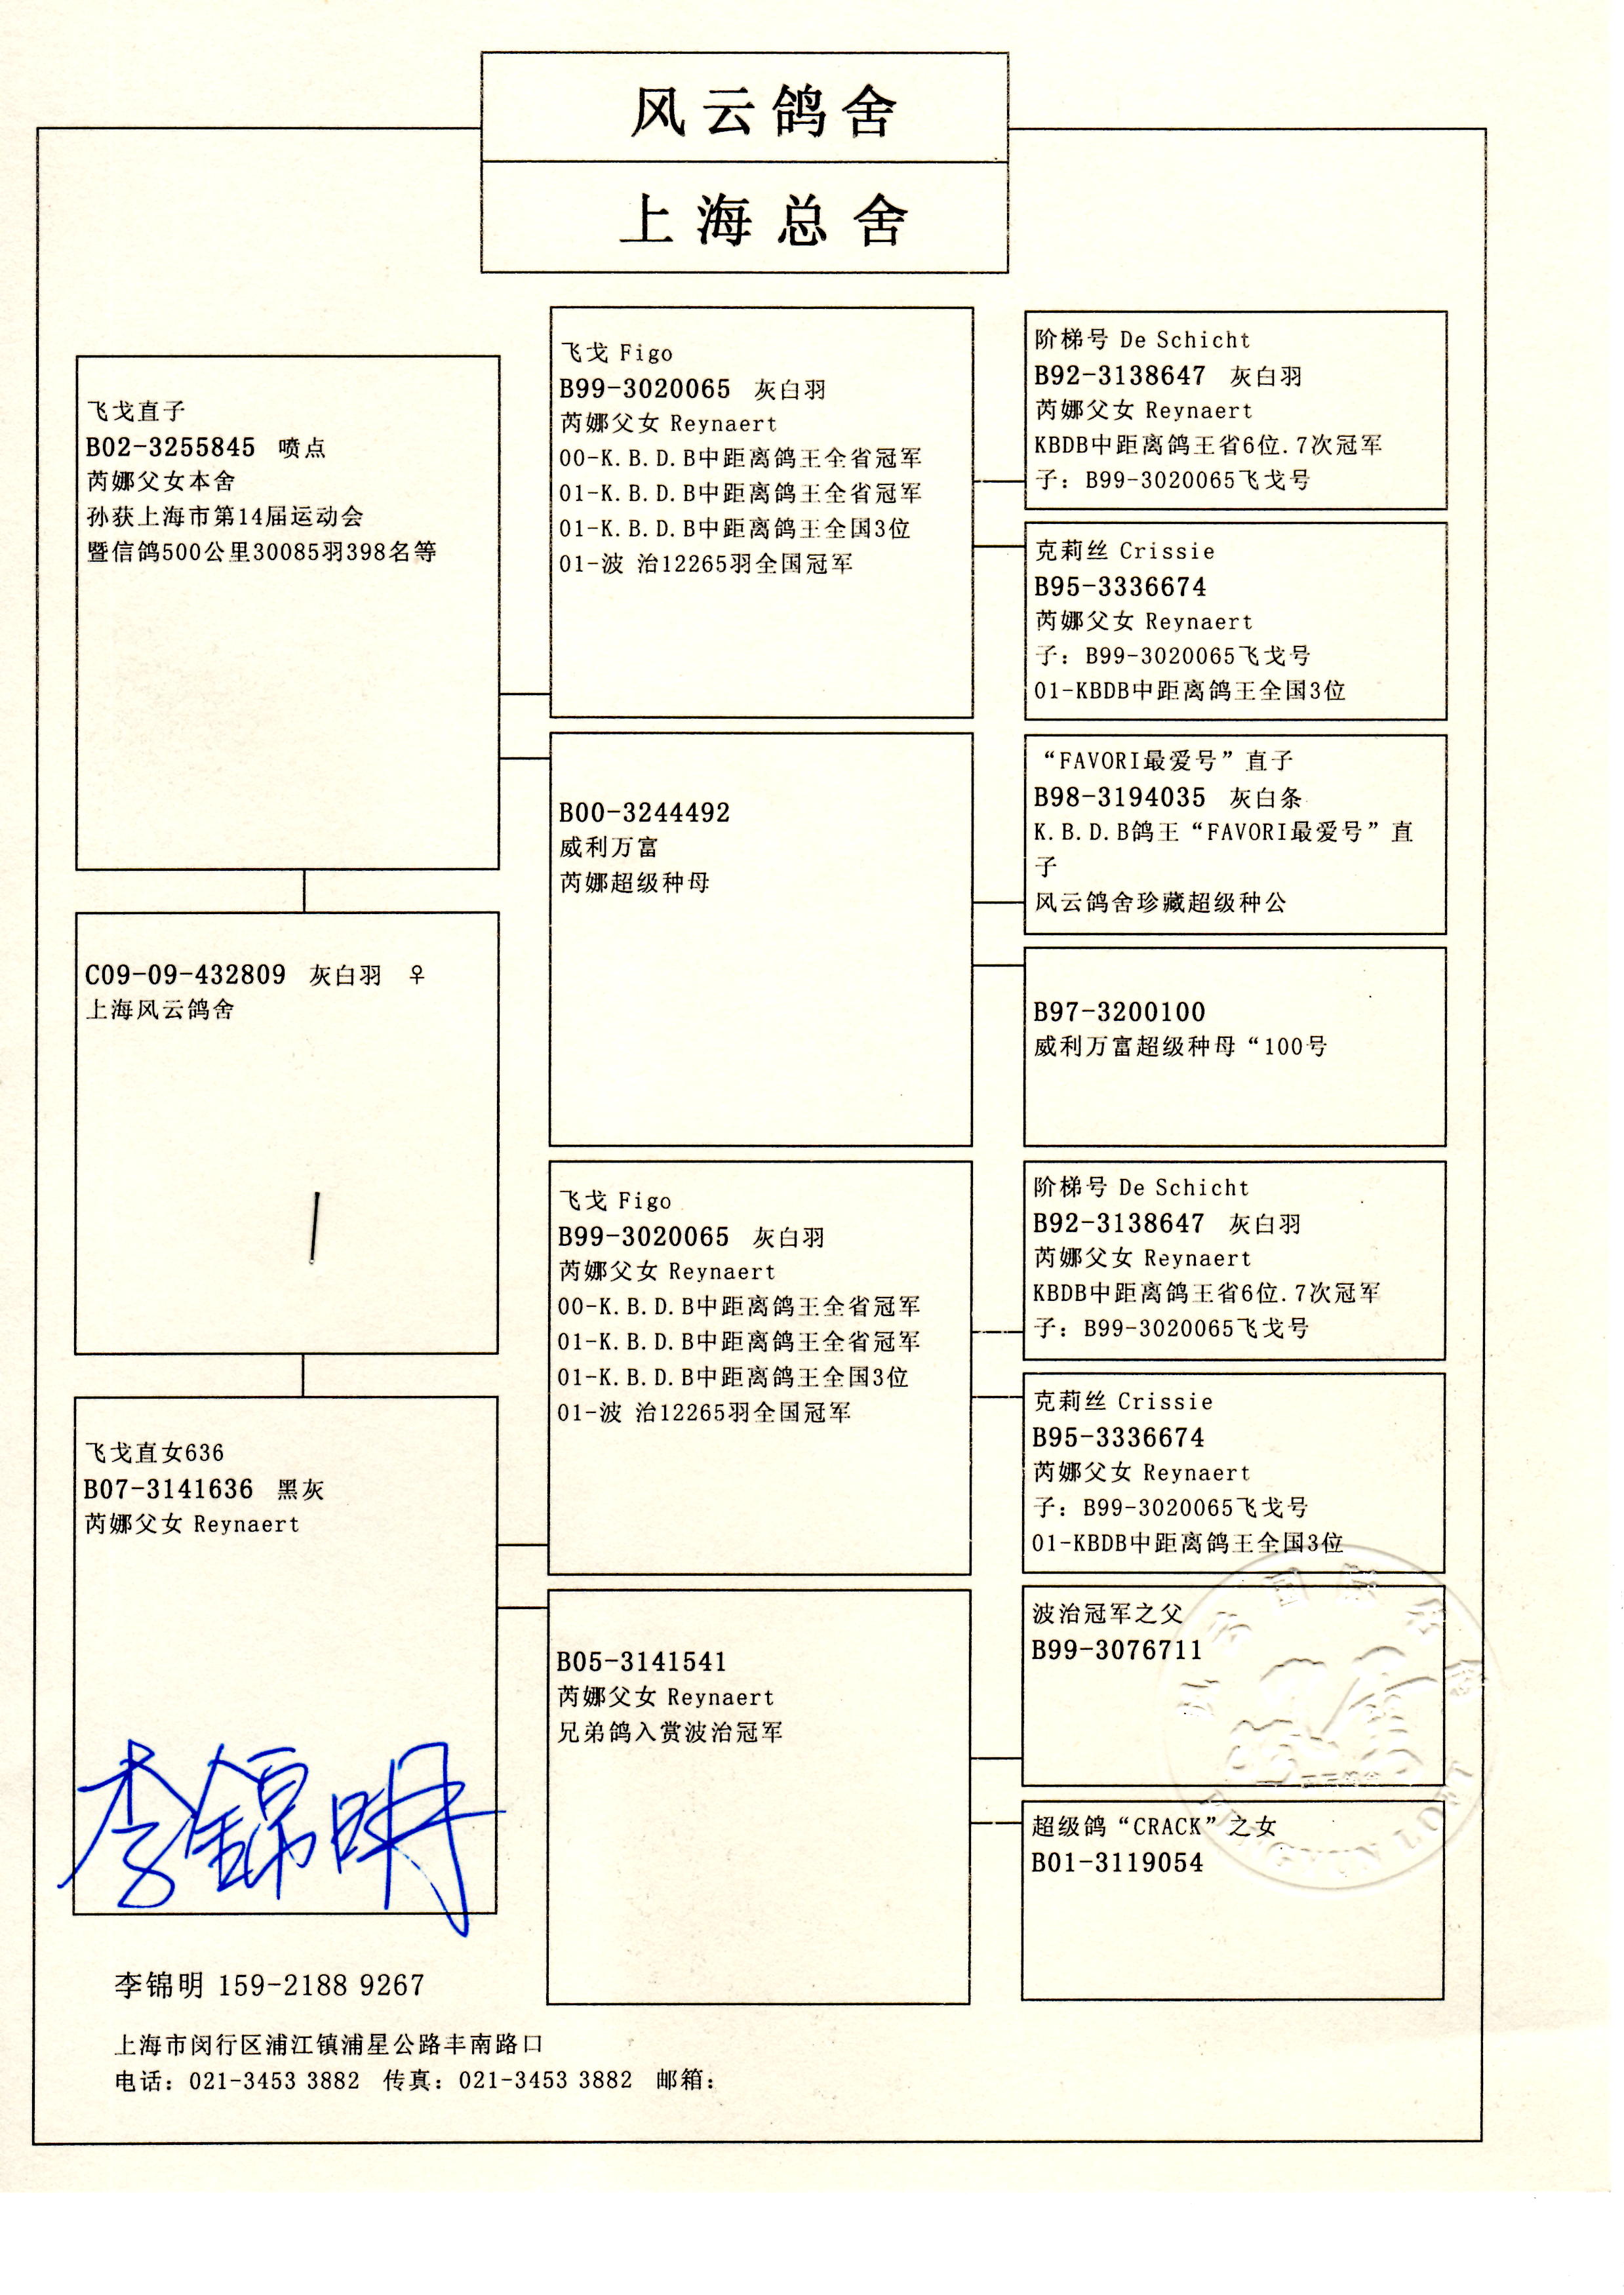 风云鸽舍
上海总舍
飞戈直子
B02-3255845 喷点
芮娜父女本舍
孙获上海市第14届运动会
暨信鸽500公里30085羽398名等
C09-09-432809 灰白羽 ♀
上海风云鸽舍
飞戈直女636
B07-3141636 黑灰
芮娜父女 Reynaert
李锦明
飞戈 Figo
B99-3020065 灰白羽
芮娜父女 Reynaert
00-K.B.D.B中距离鸽王全省冠军
01-K.B.D.B中距离鸽王全省冠军
01-K.B.D.B中距离鸽王全国3位
01-波 治12265羽全国冠军
B00-3244492
威利万富
芮娜超级种母
飞戈 Figo
B99-3020065 灰白羽
芮娜父女 Reynaert
00-K.B.D.B中距离鸽王全省冠军
01-K.B.D.B中距离鸽王全省冠军
01-K.B.D.B中距离鸽王全国3位
01-波 治12265羽全国冠军
B05-3141541
芮娜父女 Reynaert
兄弟鸽入赏波治冠军
阶梯号 De Schicht
B92-3138647 灰白羽
芮娜父女 Reynaert
KBDB中距离鸽王省6位.7次冠军
子：B99-3020065飞戈号
克莉丝 Crissie
B95-3336674
芮娜父女 Reynaert
子：B99-3020065飞戈号
01-KBDB中距离鸽王全国3位
“FAVORI最爱号”直子
B98-3194035 灰白条
K.B.D.B鸽王“FAVORI最爱号”直
子
风云鸽舍珍藏超级种公
B97-3200100
威利万富超级种母“100号
阶梯号 De Schicht
B92-3138647 灰白羽
芮娜父女 Reynaert
KBDB中距离鸽王省6位.7次冠军
子：B99-3020065飞戈号
克莉丝 Crissie
B95-3336674
芮娜父女 Reynaert
子：B99-3020065飞戈号
01-KBDB中距离鸽王全国3位
波治冠军之父
B99-3076711
超级鸽“CRACK”之女
B01-3119054
李锦明 159-2188 9267
上海市闵行区浦江镇浦星公路丰南路口
电话：021-3453 3882 传真：021-3453 3882 邮箱：